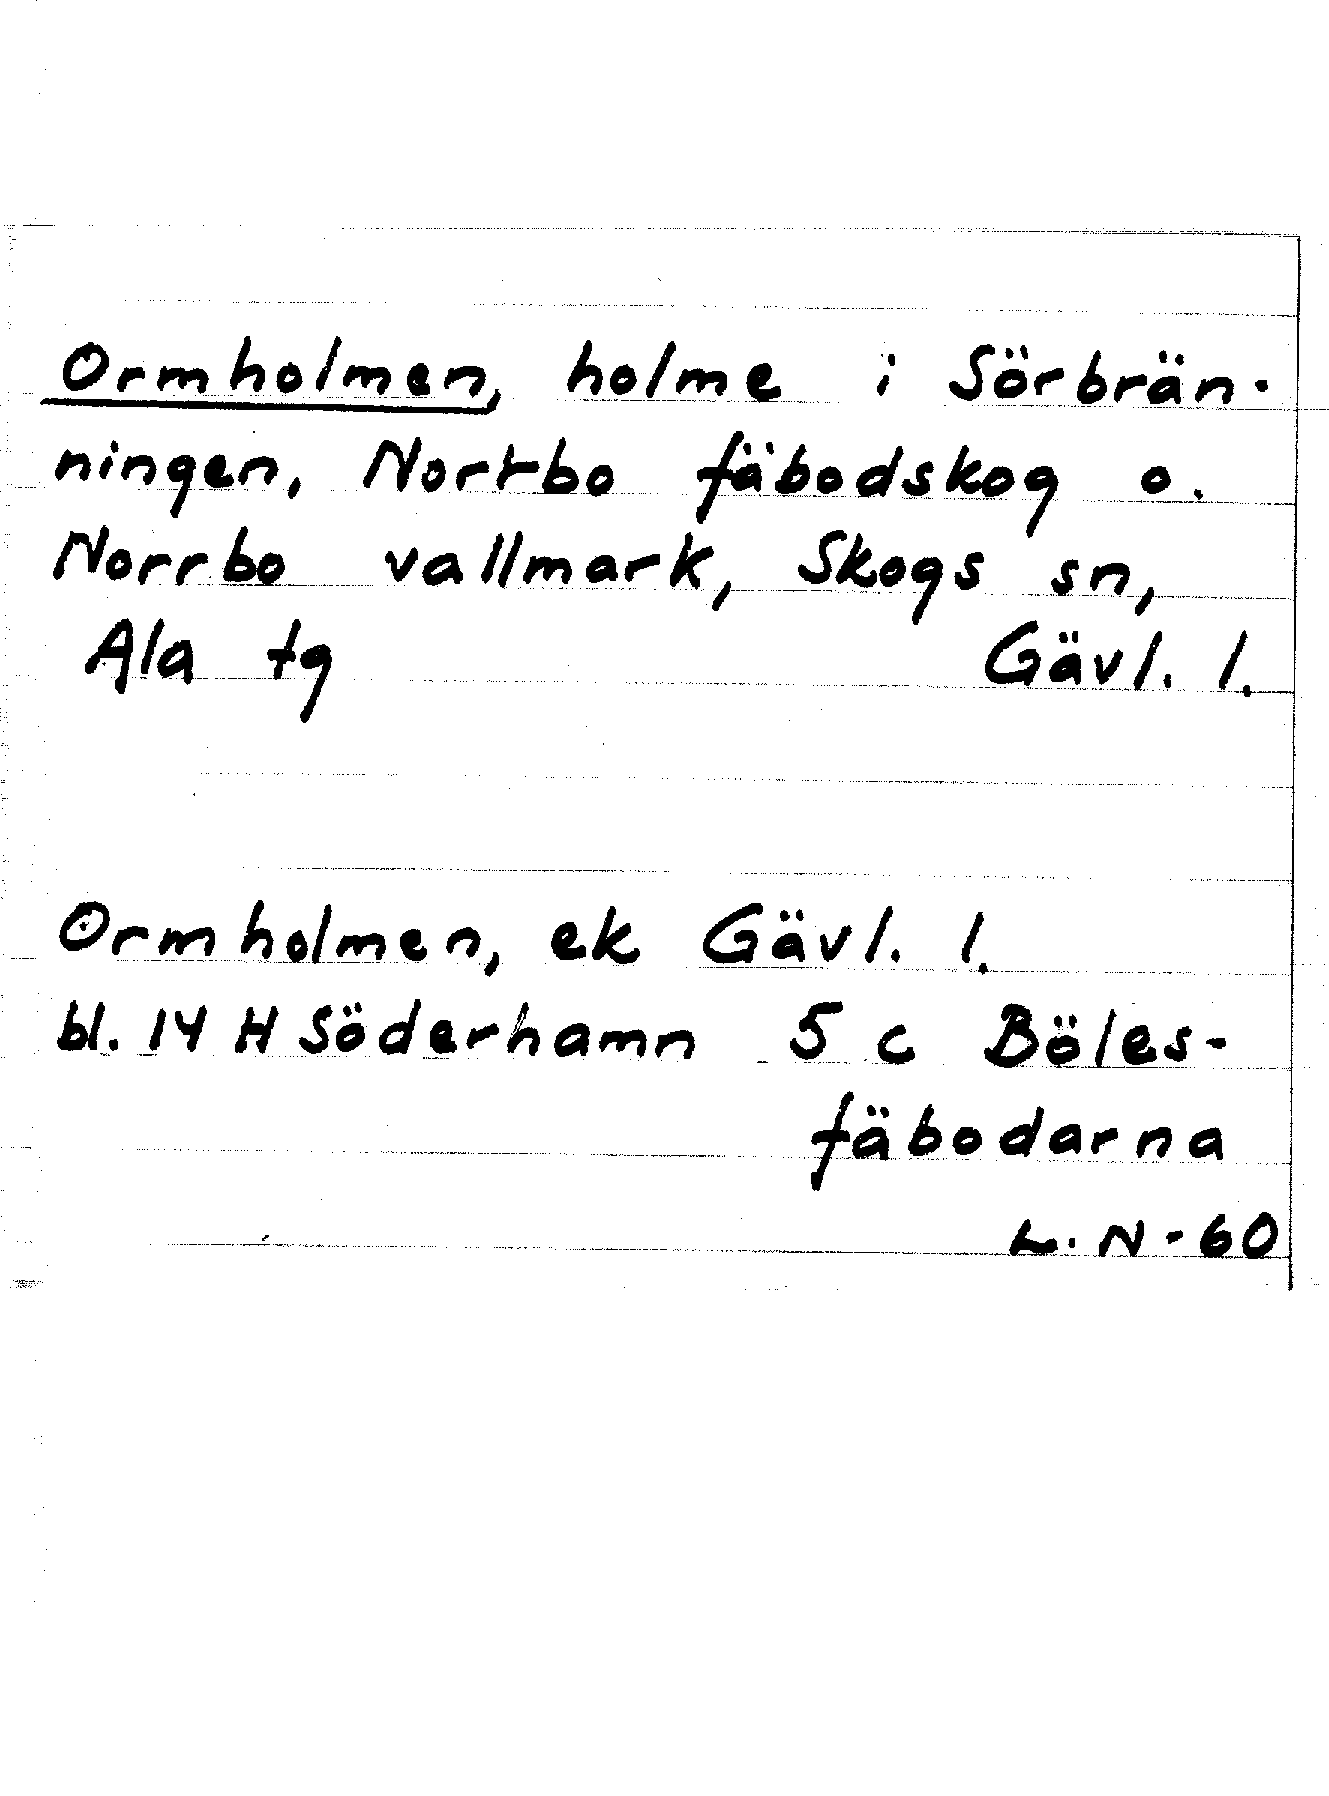 Ormholmen, holme i Sörbrän-
ningen, Norrbo fäbodskog o.
Norrbo vallmark, Skogs sn,
Ala tg Gävl. l.
Ormholmen, ek Gävl. l.
bl. 14 H Söderhamn 5 c Böles-
fäbodarna
L. N - 60